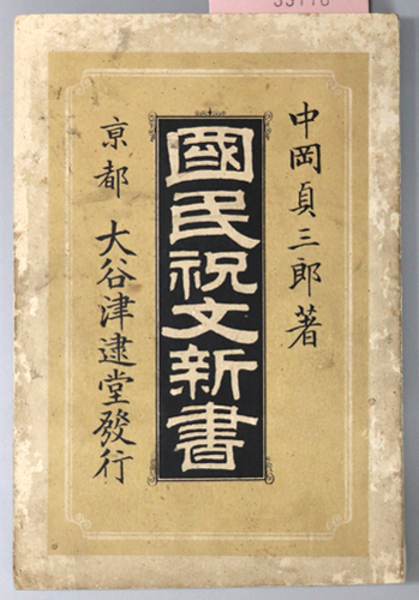 中岡貞三郎著
國民祝文新書
京都 大谷津逮堂發行